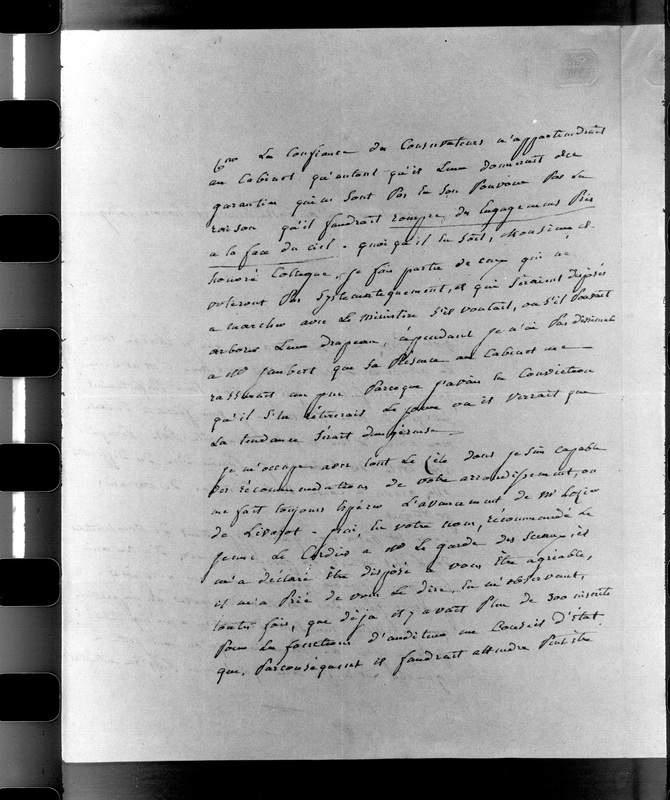 que La Confiance des Conservateurs n'appartiendrait
au Cabinet qu'autant qu'il Leur donnerait des
garanties qui ne sont Pas En Son Pouvoir Pas La
raison qu'il faudrait rompre des Engagemens Pris
a La face du ciel. quoiqu'il En soit, Monsieur et
honoré Collegue, je fais partie de ceux qui ne
voteront Pas Systematiquement, et qui Seraient disposés
a marcher avec Le Ministère S'il voulait, ou S'il Pouvait
arborer Leur drapeau, cependant je n'ai Pas dissimulé
a Mr Jaubert que Sa Présence au Cabinet me
rassurait un peu Parceque j'avais La Conviction
qu'il S'En retirerait Le jour ou il verrait que
La tendance Serait dangereuse
je m'occupe avec tout Le Zèle dont je Suis capable
des récommendations de votre arrondissement, on
me fait toujours Espérer L'avancement de Mr
de Livarot - j'ai, En votre nom, récommandé Le
jeune Le Cordier a Mr Le garde des Sceaux, il
m'a déclaré Etre disposé a vous Etre agréable,
il m'a Prié de vous Le dire, En m'observant,
toutes fois, que déja il y avait Plus de 300 inscrits
Pour Les fonctions d'auditeur au Conseil d'état
que, Parconséquent il faudrait attendre Peut etre